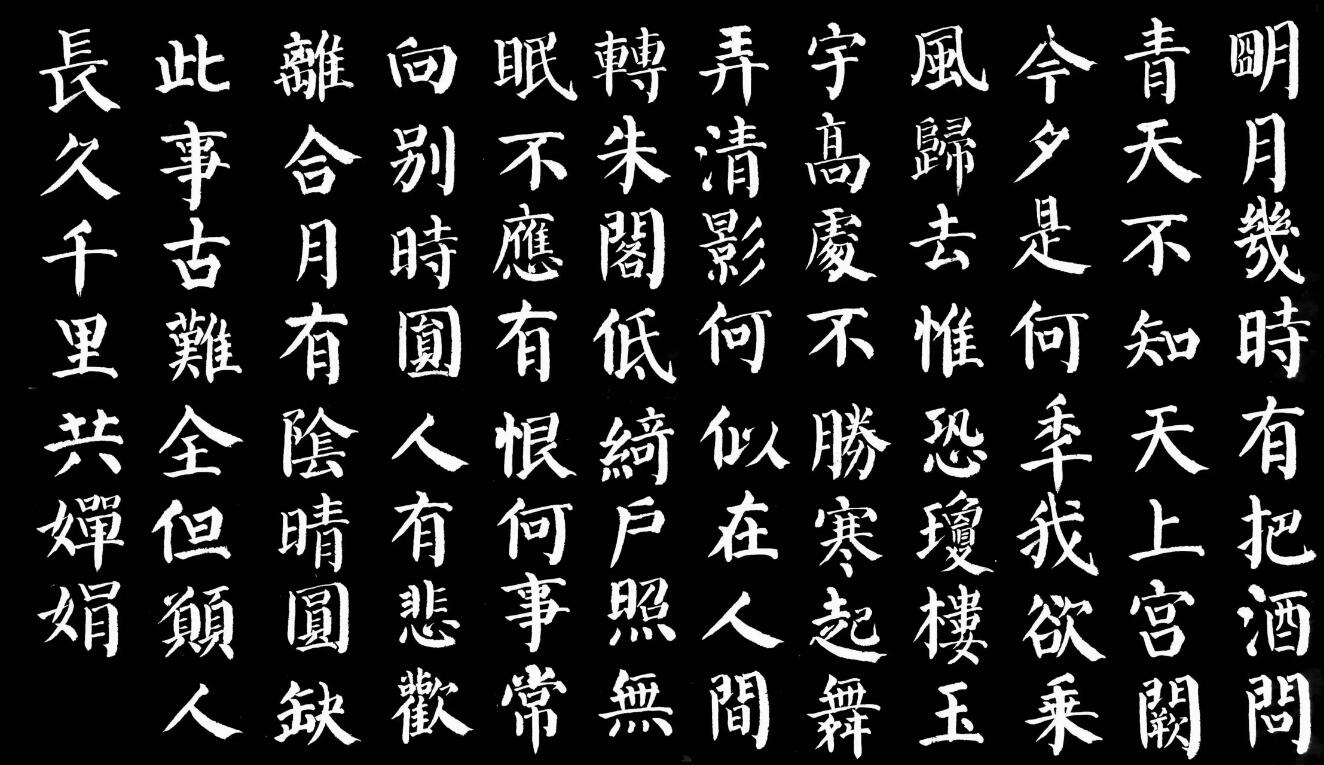 明月幾時有把酒問
青天不知天上宮闕
今夕是何年我欲乘
風歸去惟恐瓊樓玉
宇高處不勝寒起舞
弄清影何似在人間
轉朱閣低綺戶照無
眠不應有恨何事常
向别時圓人有悲歡
離合月有陰晴圓缺
此事古難全但願人
長久千里共嬋娟